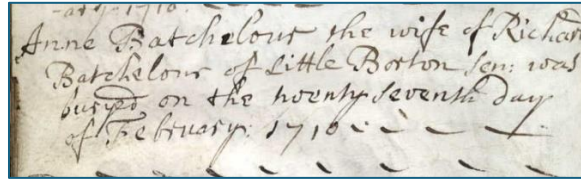 ary 1710.
Anne Batchelour the wife of Richard
Batchelour of Little Boston sen: was
buryed on the twenty seventh day
of February: 1710